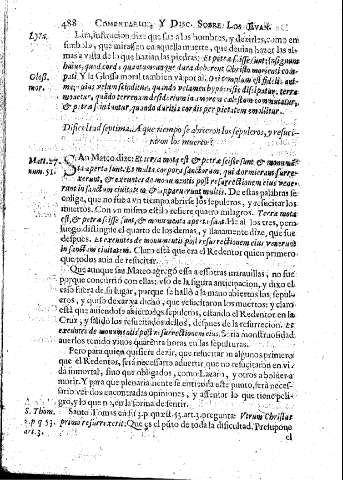 488 COMENTARIOS, Y DISC. SOBRE LOS EVAN.
Lyra.
Lira, su racion dize que fue a los hombres, y dezirles, como en
simbolo, que mirassen en aquella muerte, que devian hazer las al-
mas a vista de lo que hazian las piedras: Et petræ scissæ sunt: In signum
quod corda, quantumcunque dura deberent Christo morienti com-
Glos.
mor.
pati. Y la Glossa moral tambien va por aì.
petræ scinduntur, quando duritia cordis per pietatem emollitur.
Dificultad septima. A que tiempo se abrieron los sepulcros, y resuci-
taron los muertos?
Mat. 27.
num. 51.
SAn Mateo dize: Et terra mota est, & petræ scissæ sunt, & monumē
ta aperta sunt. Et multa corpora sanctorum, qui dormierant surre-
xerunt, & exeuntes de monumentis post resurrectionem eius vene-
runt in sanctam civitatem, & apparuerunt multis. De estas palabras se
colige, que no fue à vn tiempo abrirse los sepulcros, y resucitar los
muertos. Con vn mismo estilo refiere quatro milagros. Terra mota
est, & petræ scissæ sunt, & monumenta aperta sunt. He aì los tres, pero
luego distingue el quarto de los demas, y llanamente dize, que fue
despues. Et exeuntes de monumentis post resurrectionem eius venerunt
in sanctam civitatem. Claro està que era el Redentor quien primero
que todos avia de resucitar.
Que aunque san Mateo agregó essa a essotras maravillas, no fue
porque concurrió con ellas: vsò de la figura anticipacion, y dixo el
caso fuera de su lugar, porque se hallò a la mano abiertos los sepul-
cros, y quiso dexar ya dicho, que resucitaron los muertos: y claro
está que aviendose abierto los sepulcros, estando el Redentor en la
Cruz, y salido los resucitados dellos, despues de la resurreccion. Et
exeuntes de monumentis post resurrectionem eius. Seria monstruosidad
averlos tenido vivos quarenta horas en las sepulturas.
Pero para quien quisiere dezir, que resucitaron algunos primero
que el Redentor, serà necessario advertir que no resucitaron en vi-
da inmortal, sino que obligados, como Lazaro, y otros a bolver a
morir. Y para que plenariamente se entienda este punto, serà neces-
sario ver dos encontradas opiniones, y assentar lo que tiene peli-
gro, y lo que no, en la forma de sentir.
S. Thom.
3. p. q. 53.
art. 3.
Santo Tomas en su 3. p. q. 53. art. 3. pregunta: Vtrum Christus
primo resurrexerit: Que es el pũto de toda la dificultad. Prelupone
el